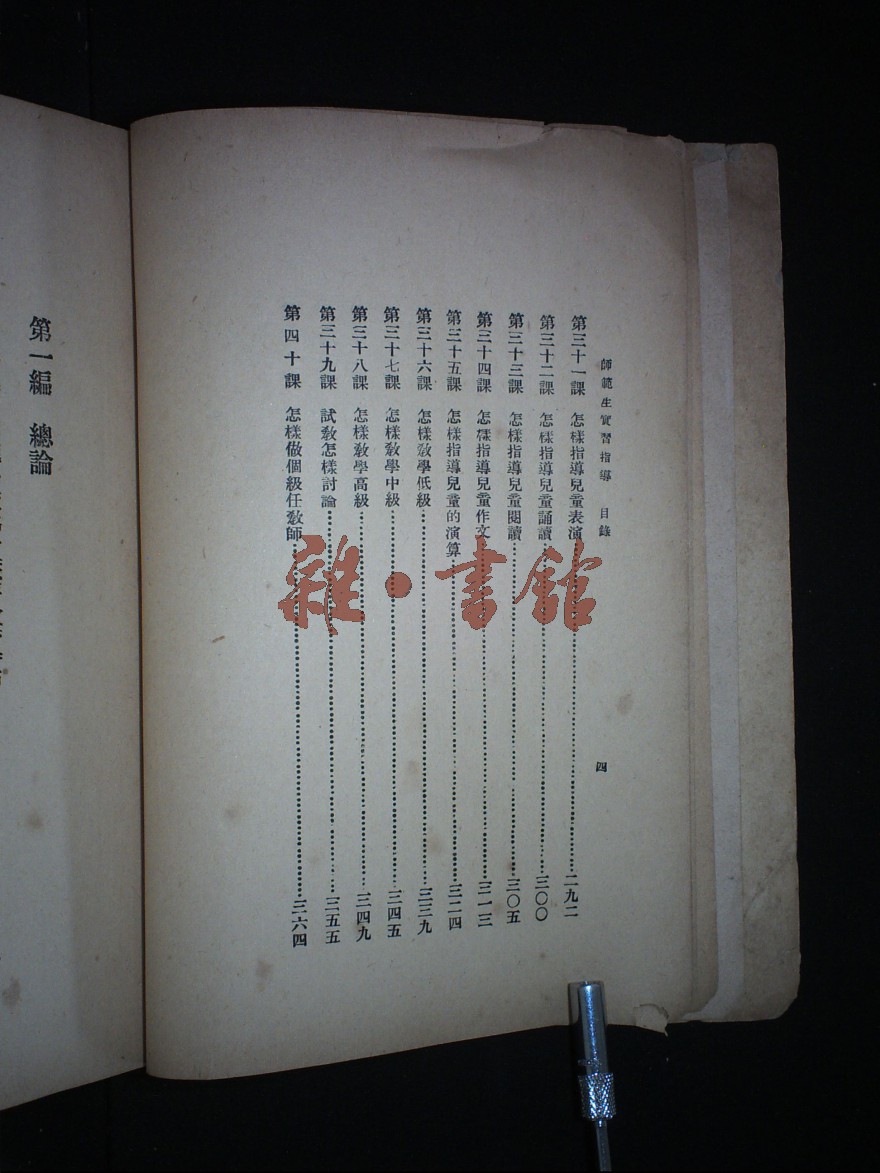 師範生實習指導 目錄
四
第三十一課 怎樣指導兒童表演……二九二
第三十二課 怎樣指導兒童誦讀……三〇〇
第三十三課 怎樣指導兒童閱讀……三〇五
第三十四課 怎樣指導兒童作文……三一三
第三十五課 怎樣指導兒童的演算……三二四
第三十六課 怎樣教學低級……三三九
第三十七課 怎樣教學中級……三四五
第三十八課 怎樣教學高級……三四九
第三十九課 試教怎樣討論……三五五
第四十課 怎樣做個級任教師……三六四
第一編 總論
雜·書館